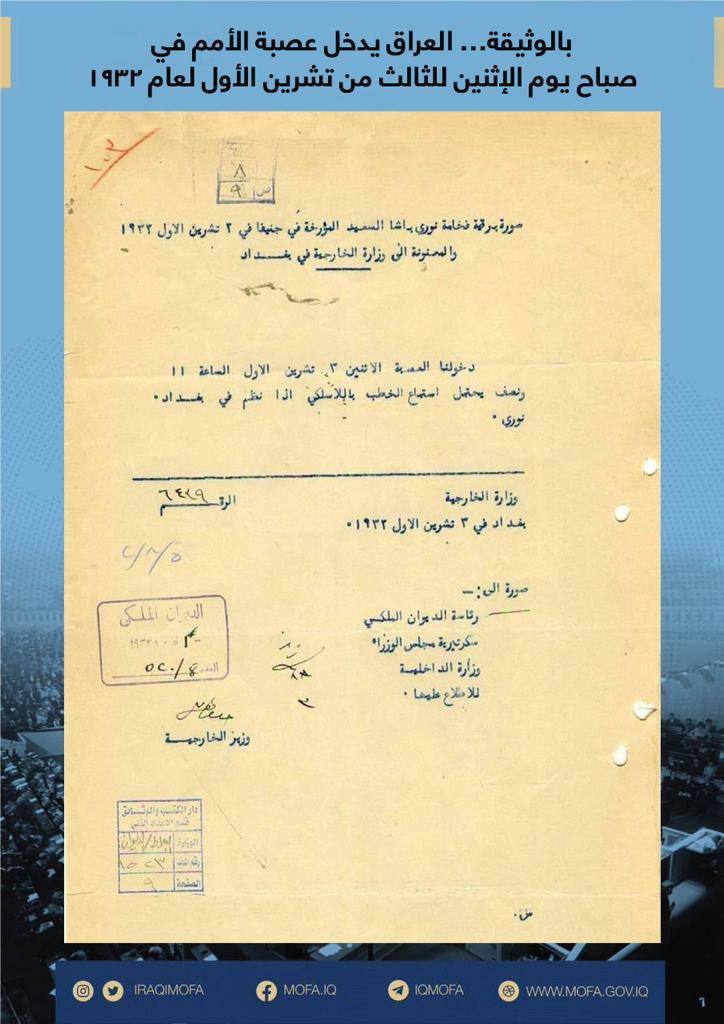 بالوثيقة... العراق يدخل عصبة الأمم في
صباح يوم الإثنين للثالث من تشرين الأول لعام ١٩٣٢
١٠٣
٨
ص ٩
صورة برقية فخامة نوري باشا السعيد المؤرخة في جنيفا في ٢ تشرين الاول ١٩٣٢
والمعنونة الى وزارة الخارجية في بغداد
دخولنا العصبة الاثنين ٣ تشرين الاول الساعة ١١
ونصف يحتمل استماع الخطب باللاسلكي اذا نظم في بغداد٠
نوري ٠
وزارة الخارجية
الرقم ٦٤٢٩
بغداد في ٣ تشرين الاول ١٩٣٢٠
صورة الى :ـ
رئاسة الديوان الملكي
سكرتيرية مجلس الوزراء
وزارة الداخلية
للاطلاع عليها ٠
الديوان الملكي
العدد
وزير الخارجية
دار الكتب والوثائق
الوزارة
رقم الملف
الصفحة ٩
ص٠
IRAQIMOFA
MOFA.IQ
IQMOFA
WWW.MOFA.GOV.IQ
٦